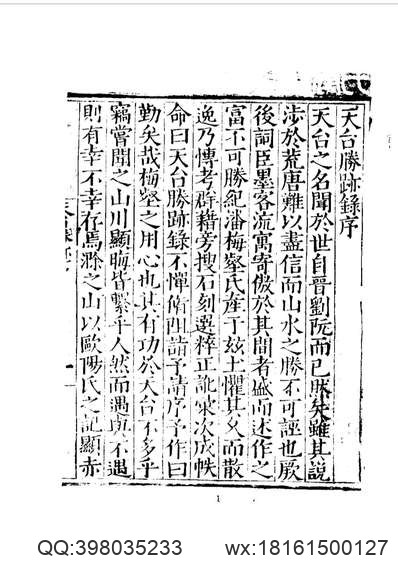 天台勝跡錄序
天台之名聞於世自晉劉阮而已然矣雖其說
涉於荒唐難以盡信而山水之勝不可誣也厥
後詞臣墨客流寓寄傲於其間者盛而述作之
富不可勝紀潘梅壑氏産丁玆土懼其久而散
逸乃博考群籍旁搜石刻選粹正訛彙次成帙
命曰天台勝跡錄不憚脩阻詣予請序予作曰
勤矣哉梅壑之用心也其有功於天台不多乎
竊嘗聞之山川顯晦皆繫乎人然而遇與不遇
則有幸不幸存焉滁之山以歐陽氏之記顯赤
1
QQ:398035233 wx:18161500127